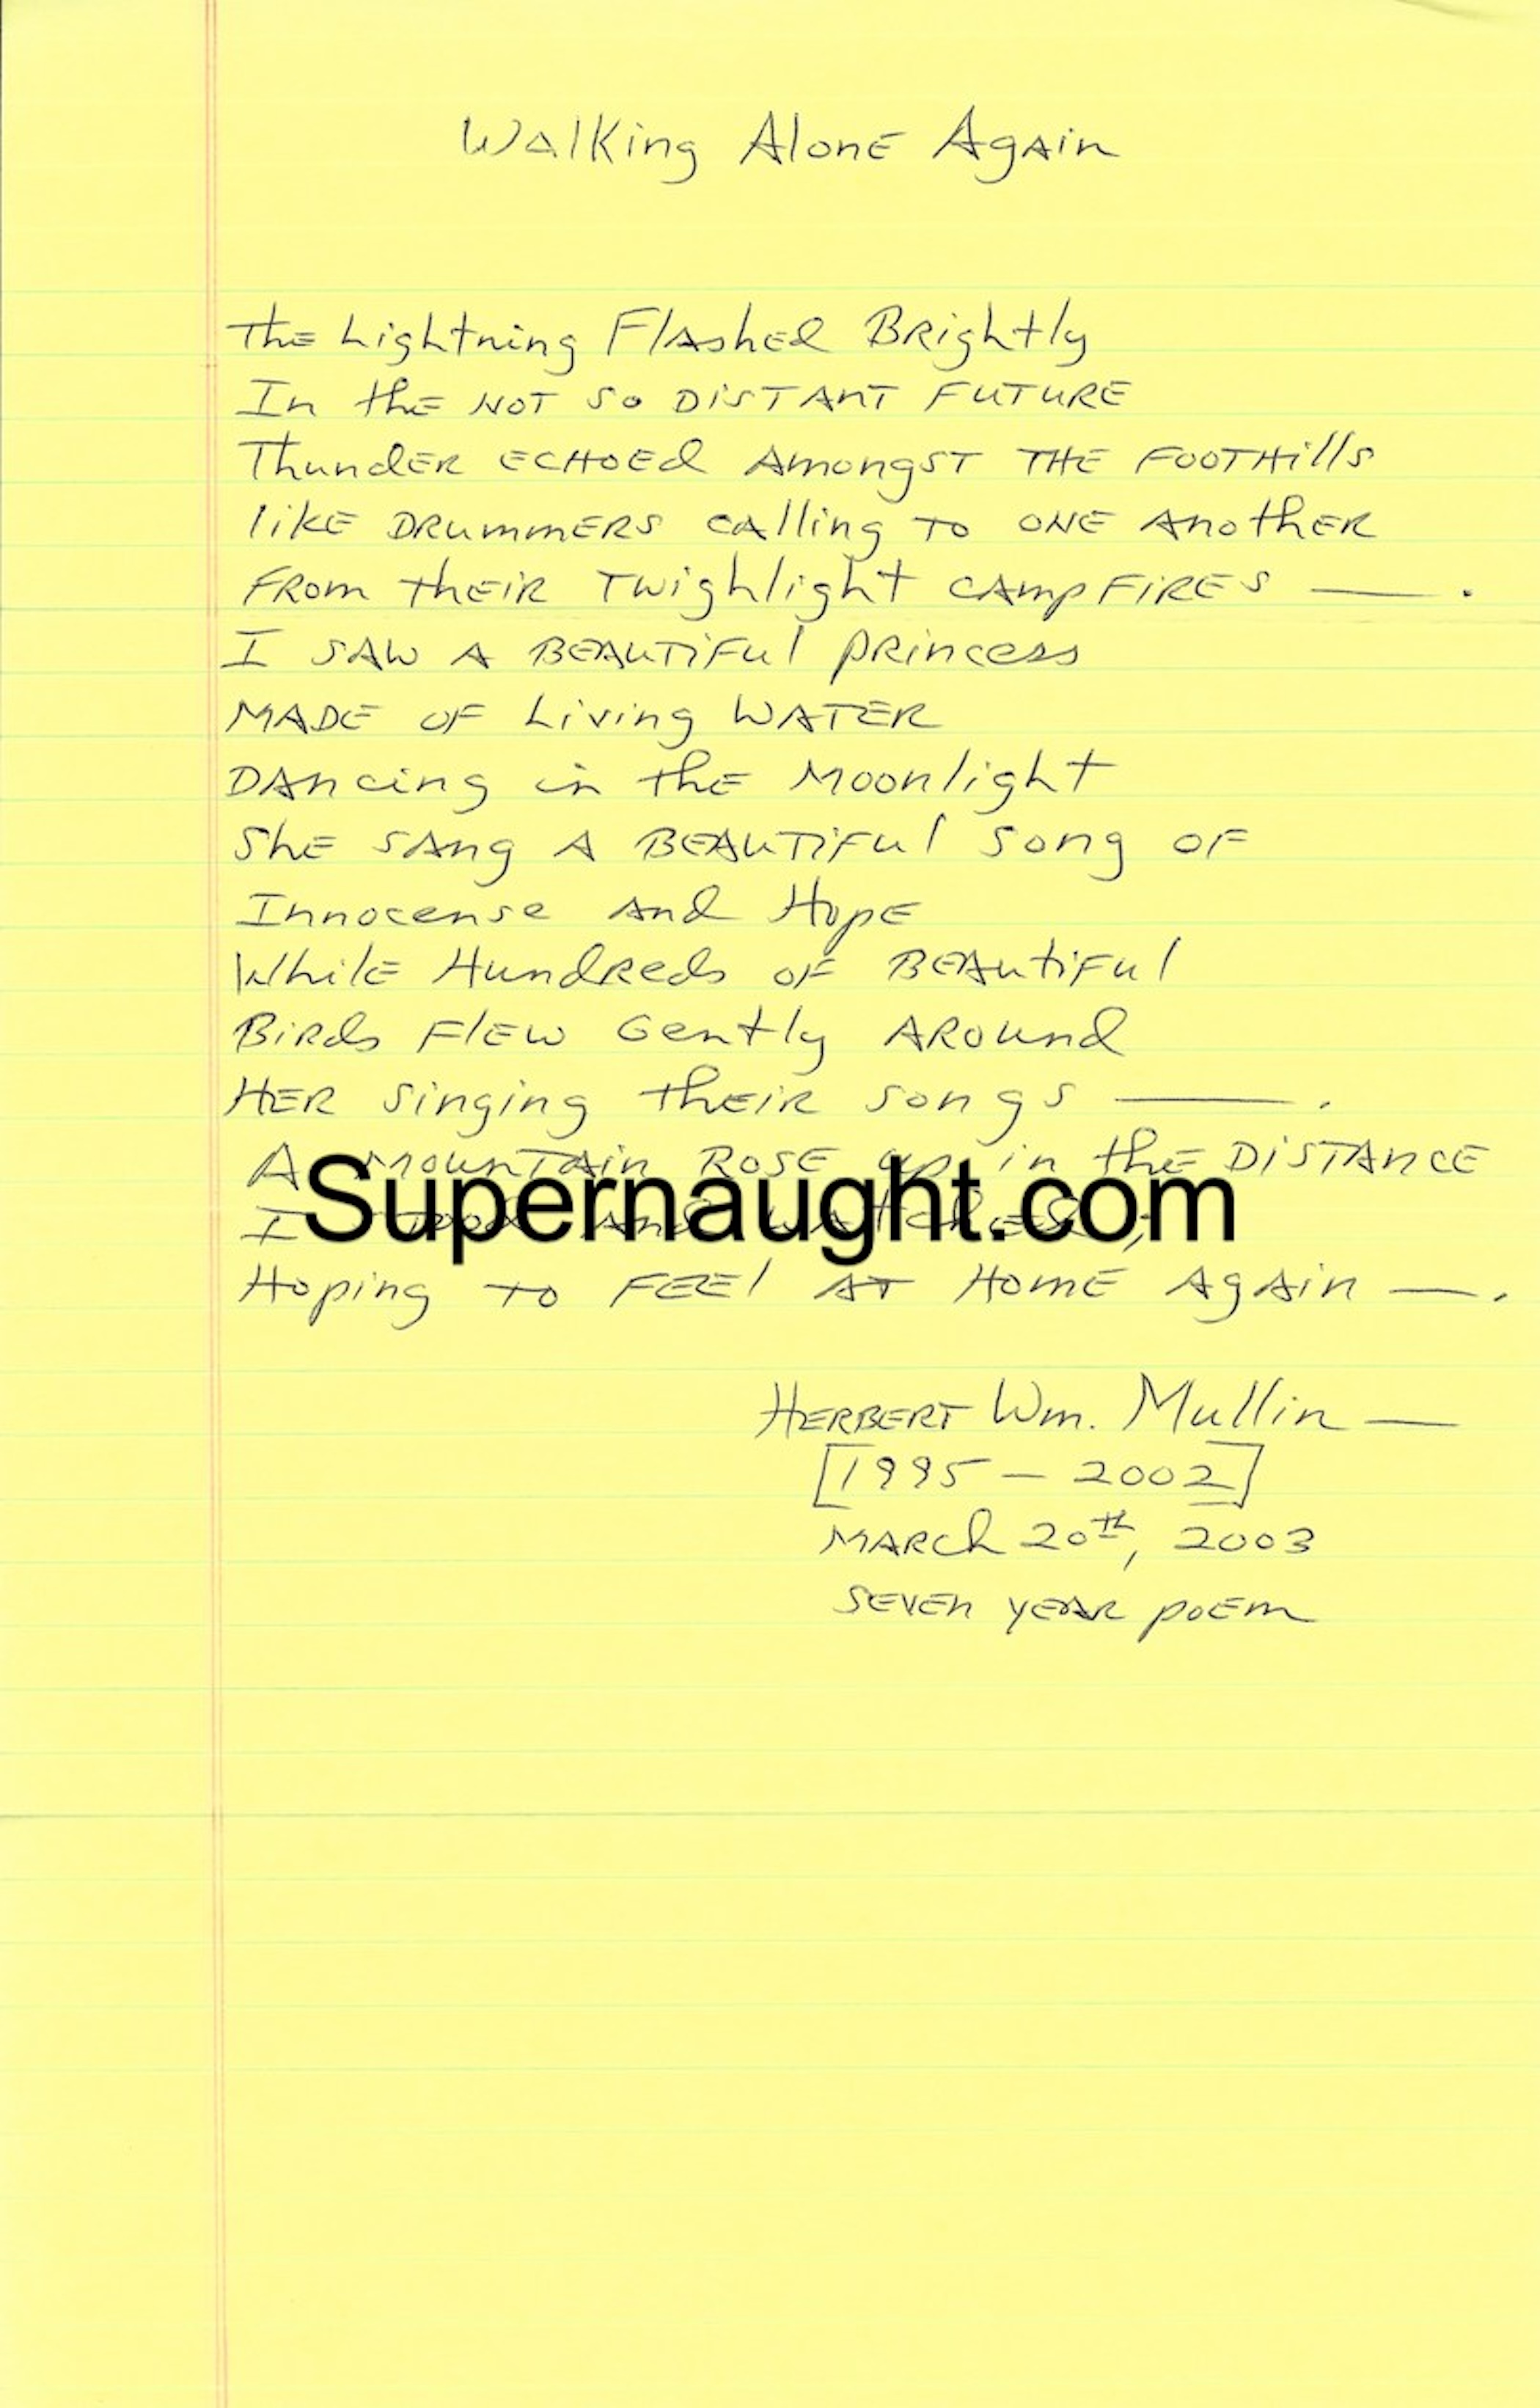 Walking Alone Again
The Lightning Flashed Brightly
In the NOT SO DISTANT FUTURE
Thunder ECHOEd Amongst THE FOOTHills
like DRummERS calling TO ONE Another
From their Twighlight CAmpFiRES —.
I SAW A BEAUTiFul princess
MADE OF Living WATER
DAncing in the Moonlight
She SAng A BEAUTiFul Song OF
Innocense And Hope
While Hundreds OF BEAutiFul
Birds Flew Gently AROund
HER singing their songs —.
A Mountain ROSE up in the DiSTAnCE
Supernaught.com
I And
Hoping TO FEEl AT HomE AgAin —.
HERBERT Wm. Mullin —
[1995 – 2002]
March 20th, 2003
SEVEn yEAR poEm